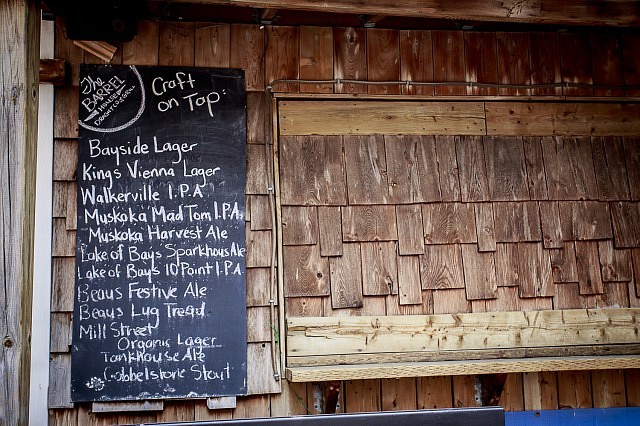 The
BARREL
HOUSE
Craft
on Tap:
Bayside Lager
Kings Vienna Lager
Walkerville I.P.A
Muskoka Mad Tom I.P.A
Muskoka Harvest Ale
Lake of Bays Sparkhouse Ale
Lake of Bays 10 Point I.P.A
Beaus Festive Ale
Beaus Lug Tread
Mill Street
Organic Lager
Tankhouse Ale
Cobbelstone Stout